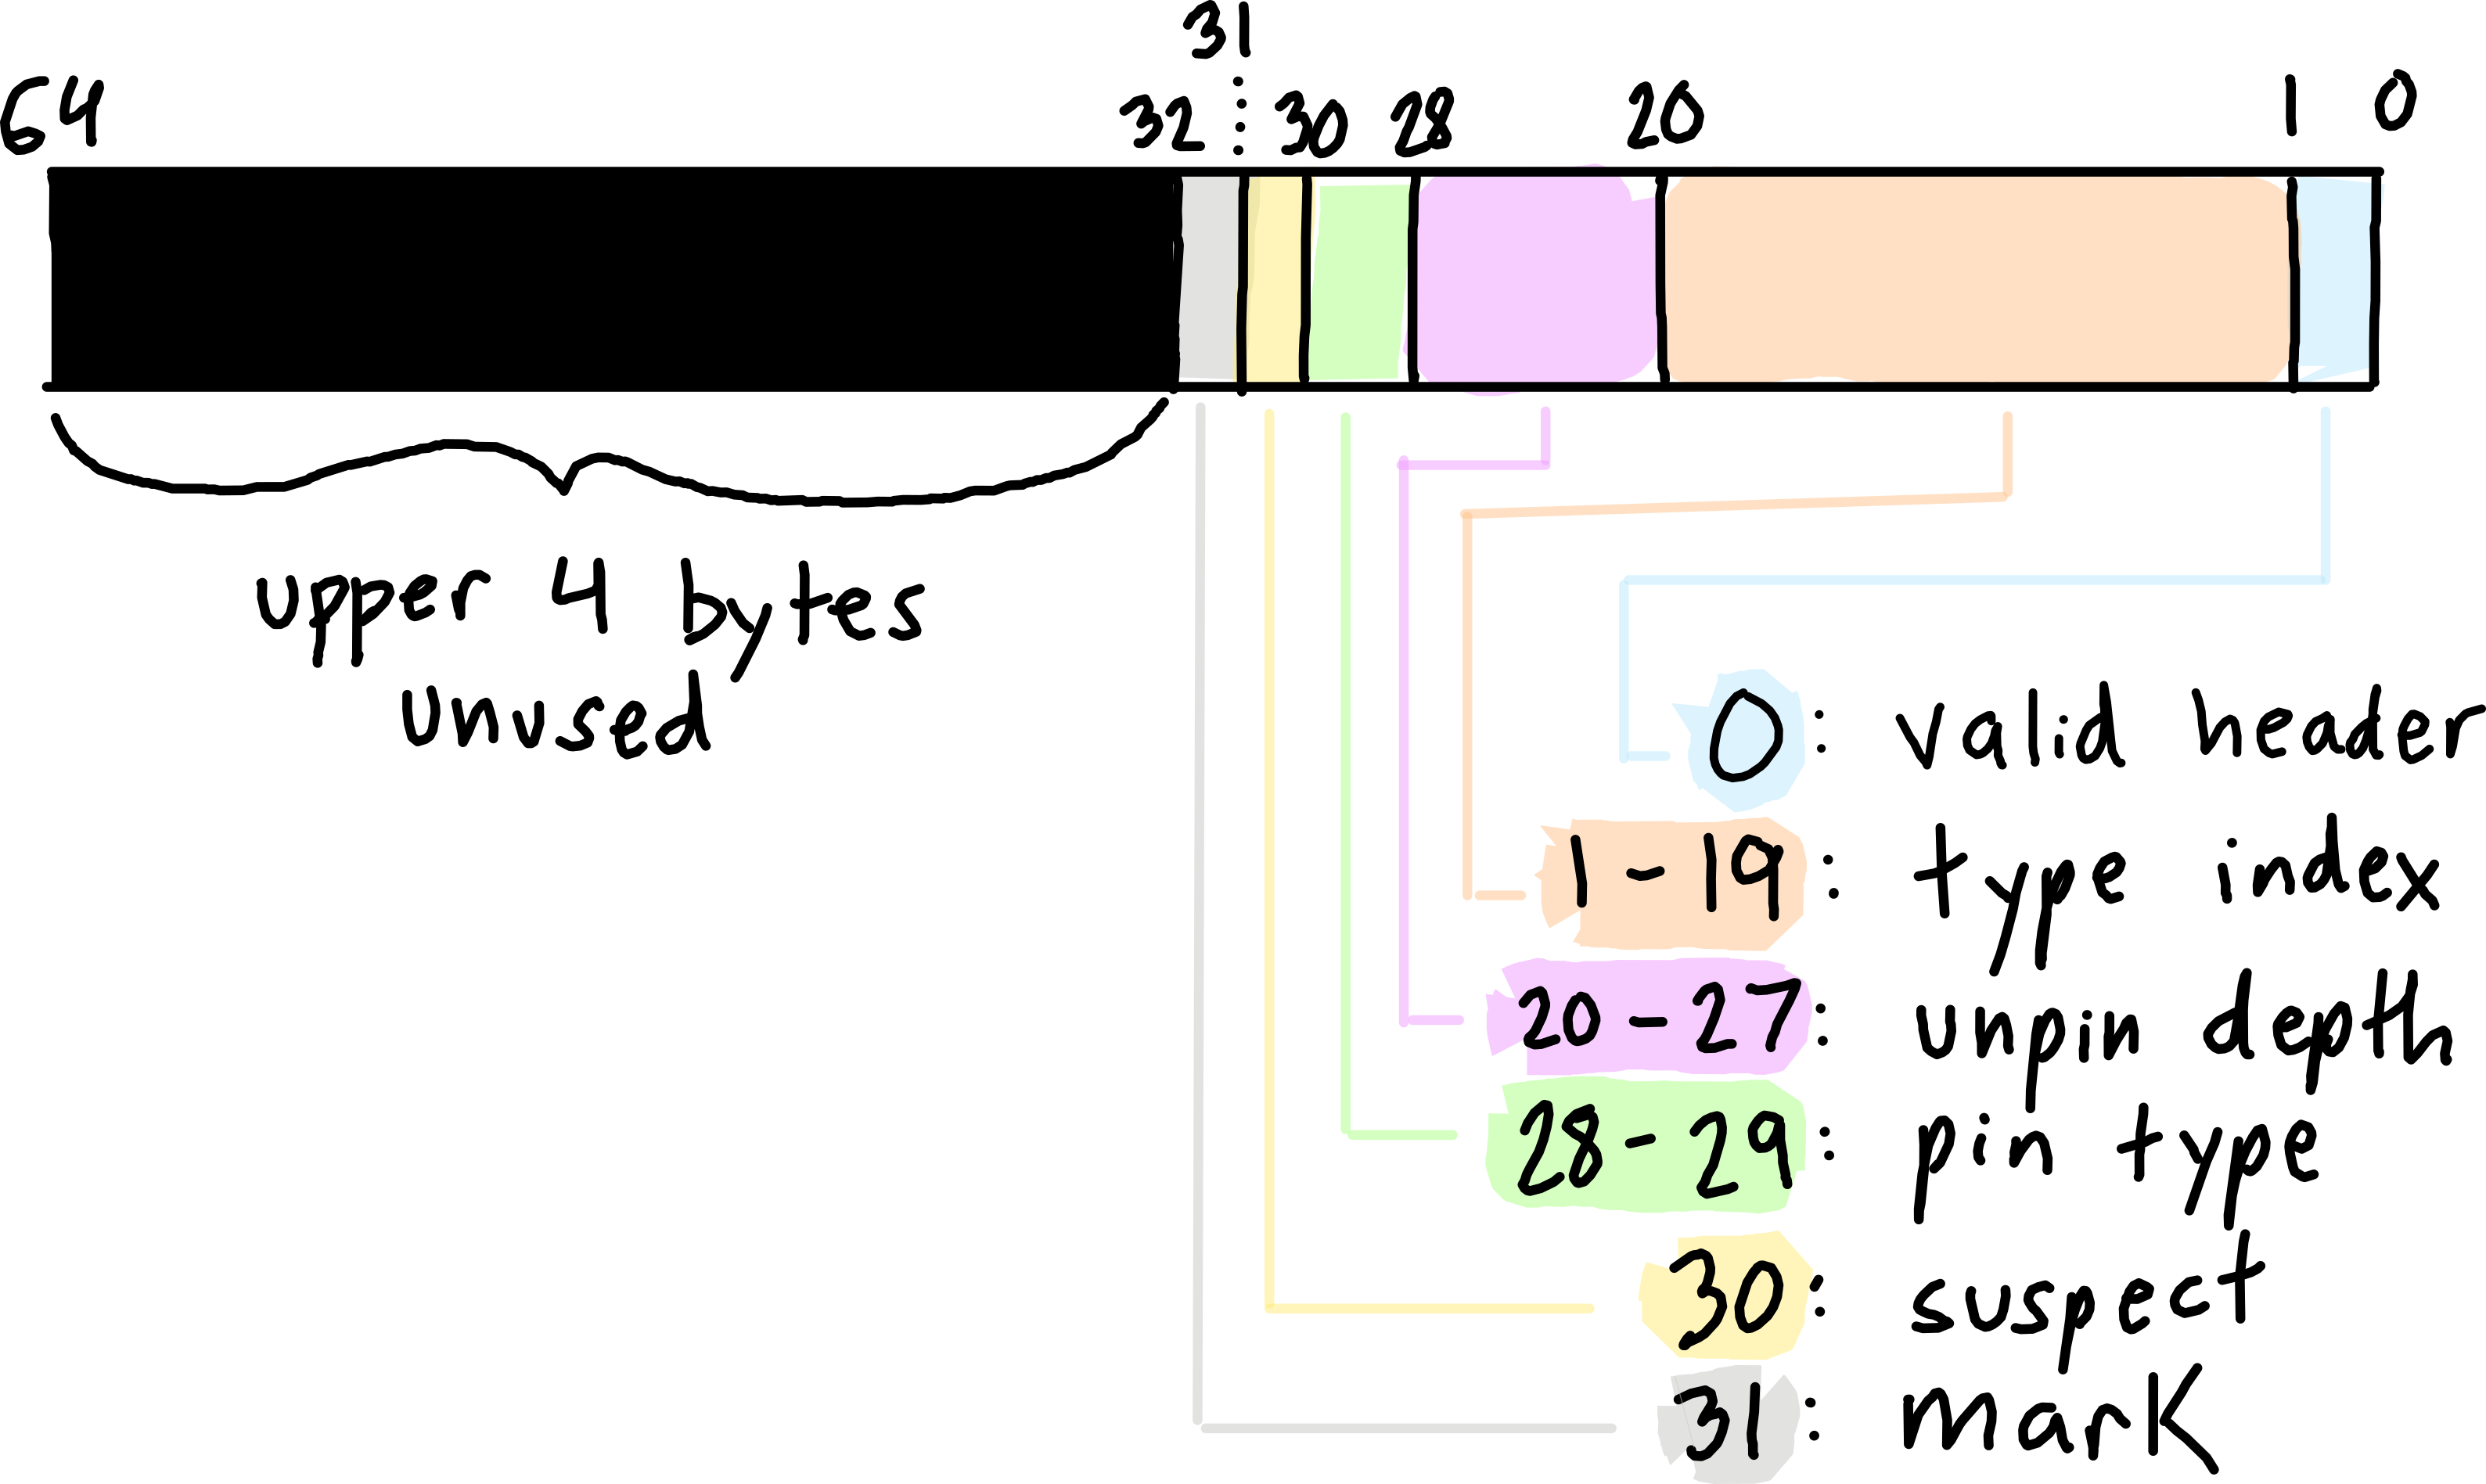 31
64 32 30 28 20 1 0
upper 4 bytes
unused
0: valid header
1-19: type index
20-27: unpin depth
28-29: pin type
30: suspect
31: mark